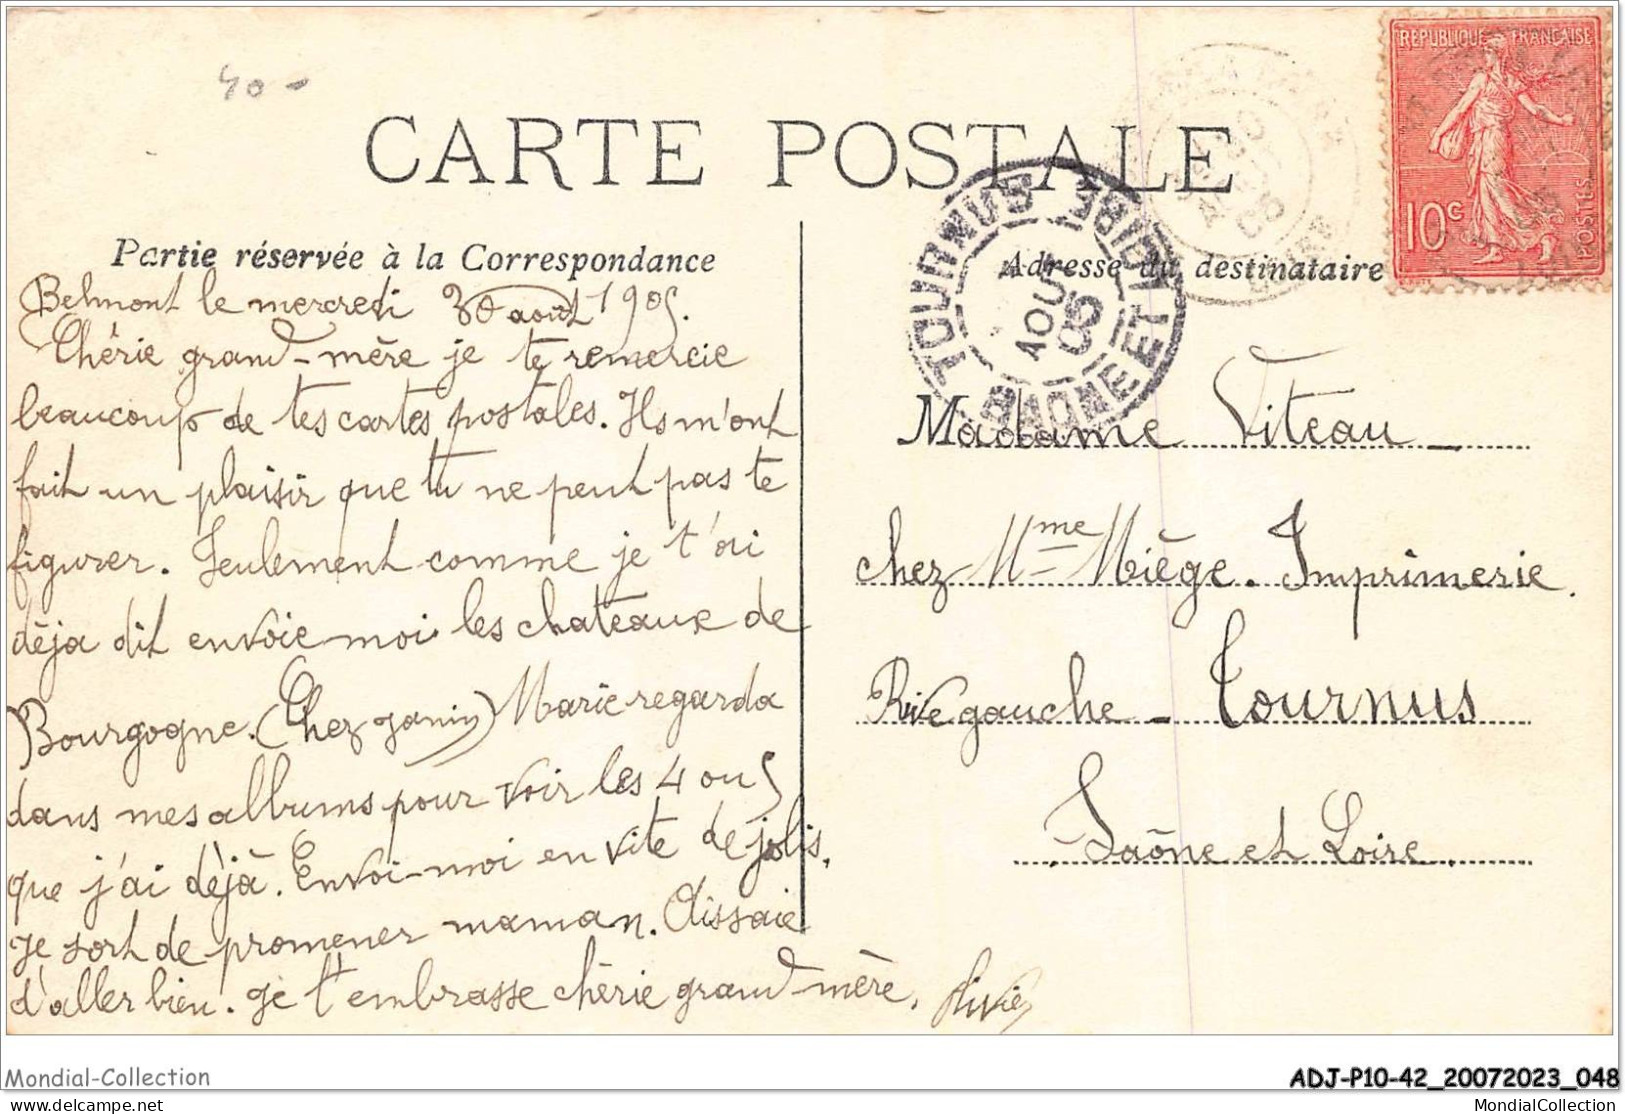 40 -
CARTE POSTALE
RÉPUBLIQUE FRANÇAISE
10c
POSTES
TOURNUS
SAONE ET LOIRE
AOUT
05
Partie réservée à la Correspondance
Adresse du destinataire
Belmont le mercredi 30 août 1905.
Chérie grand-mère je te remercie
beaucoup de tes cartes postales. Ils m'ont
fait un plaisir que tu ne peut pas te
figurer. Seulement comme je t'ai
dèja dit envoie moi les chateaux de
Bourgogne. (Chez Janin) Marie regarda
dans mes albums pour voir les 4 ou 5
que j'ai dèjà. Envoi-moi en vite de jolis,
Je sort de promener maman. Aissaie
d'aller bien. Je t'embrasse chèrie grand-mère.
Madame Viteau
chez Mme Miège. Imprimerie.
Rive gauche - Tournus
Saône et Loire.
Mondial-Collection
ADJ-P10-42_20072023_048
delcampe.net
MondialCollection